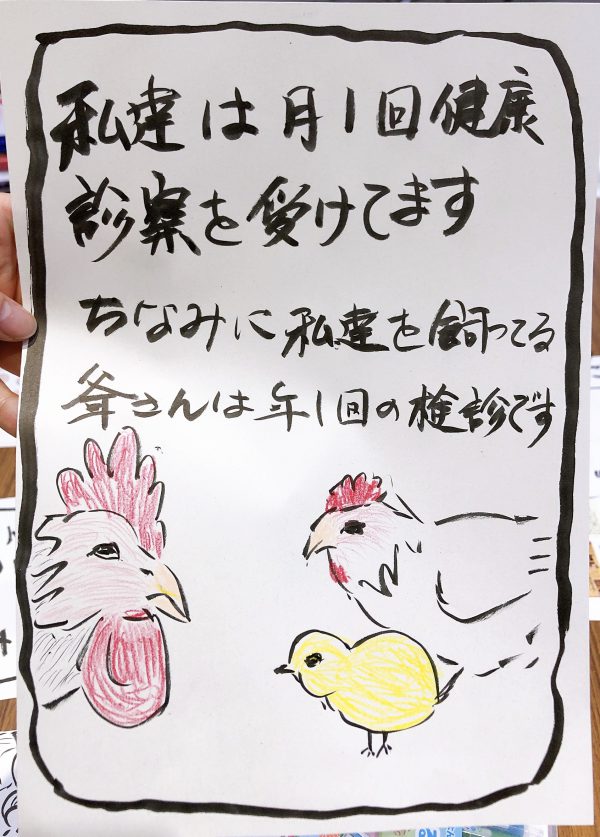 私達は月1回健康
診察を受けてます
ちなみに私達を飼ってる
釜さんは年1回の検診です